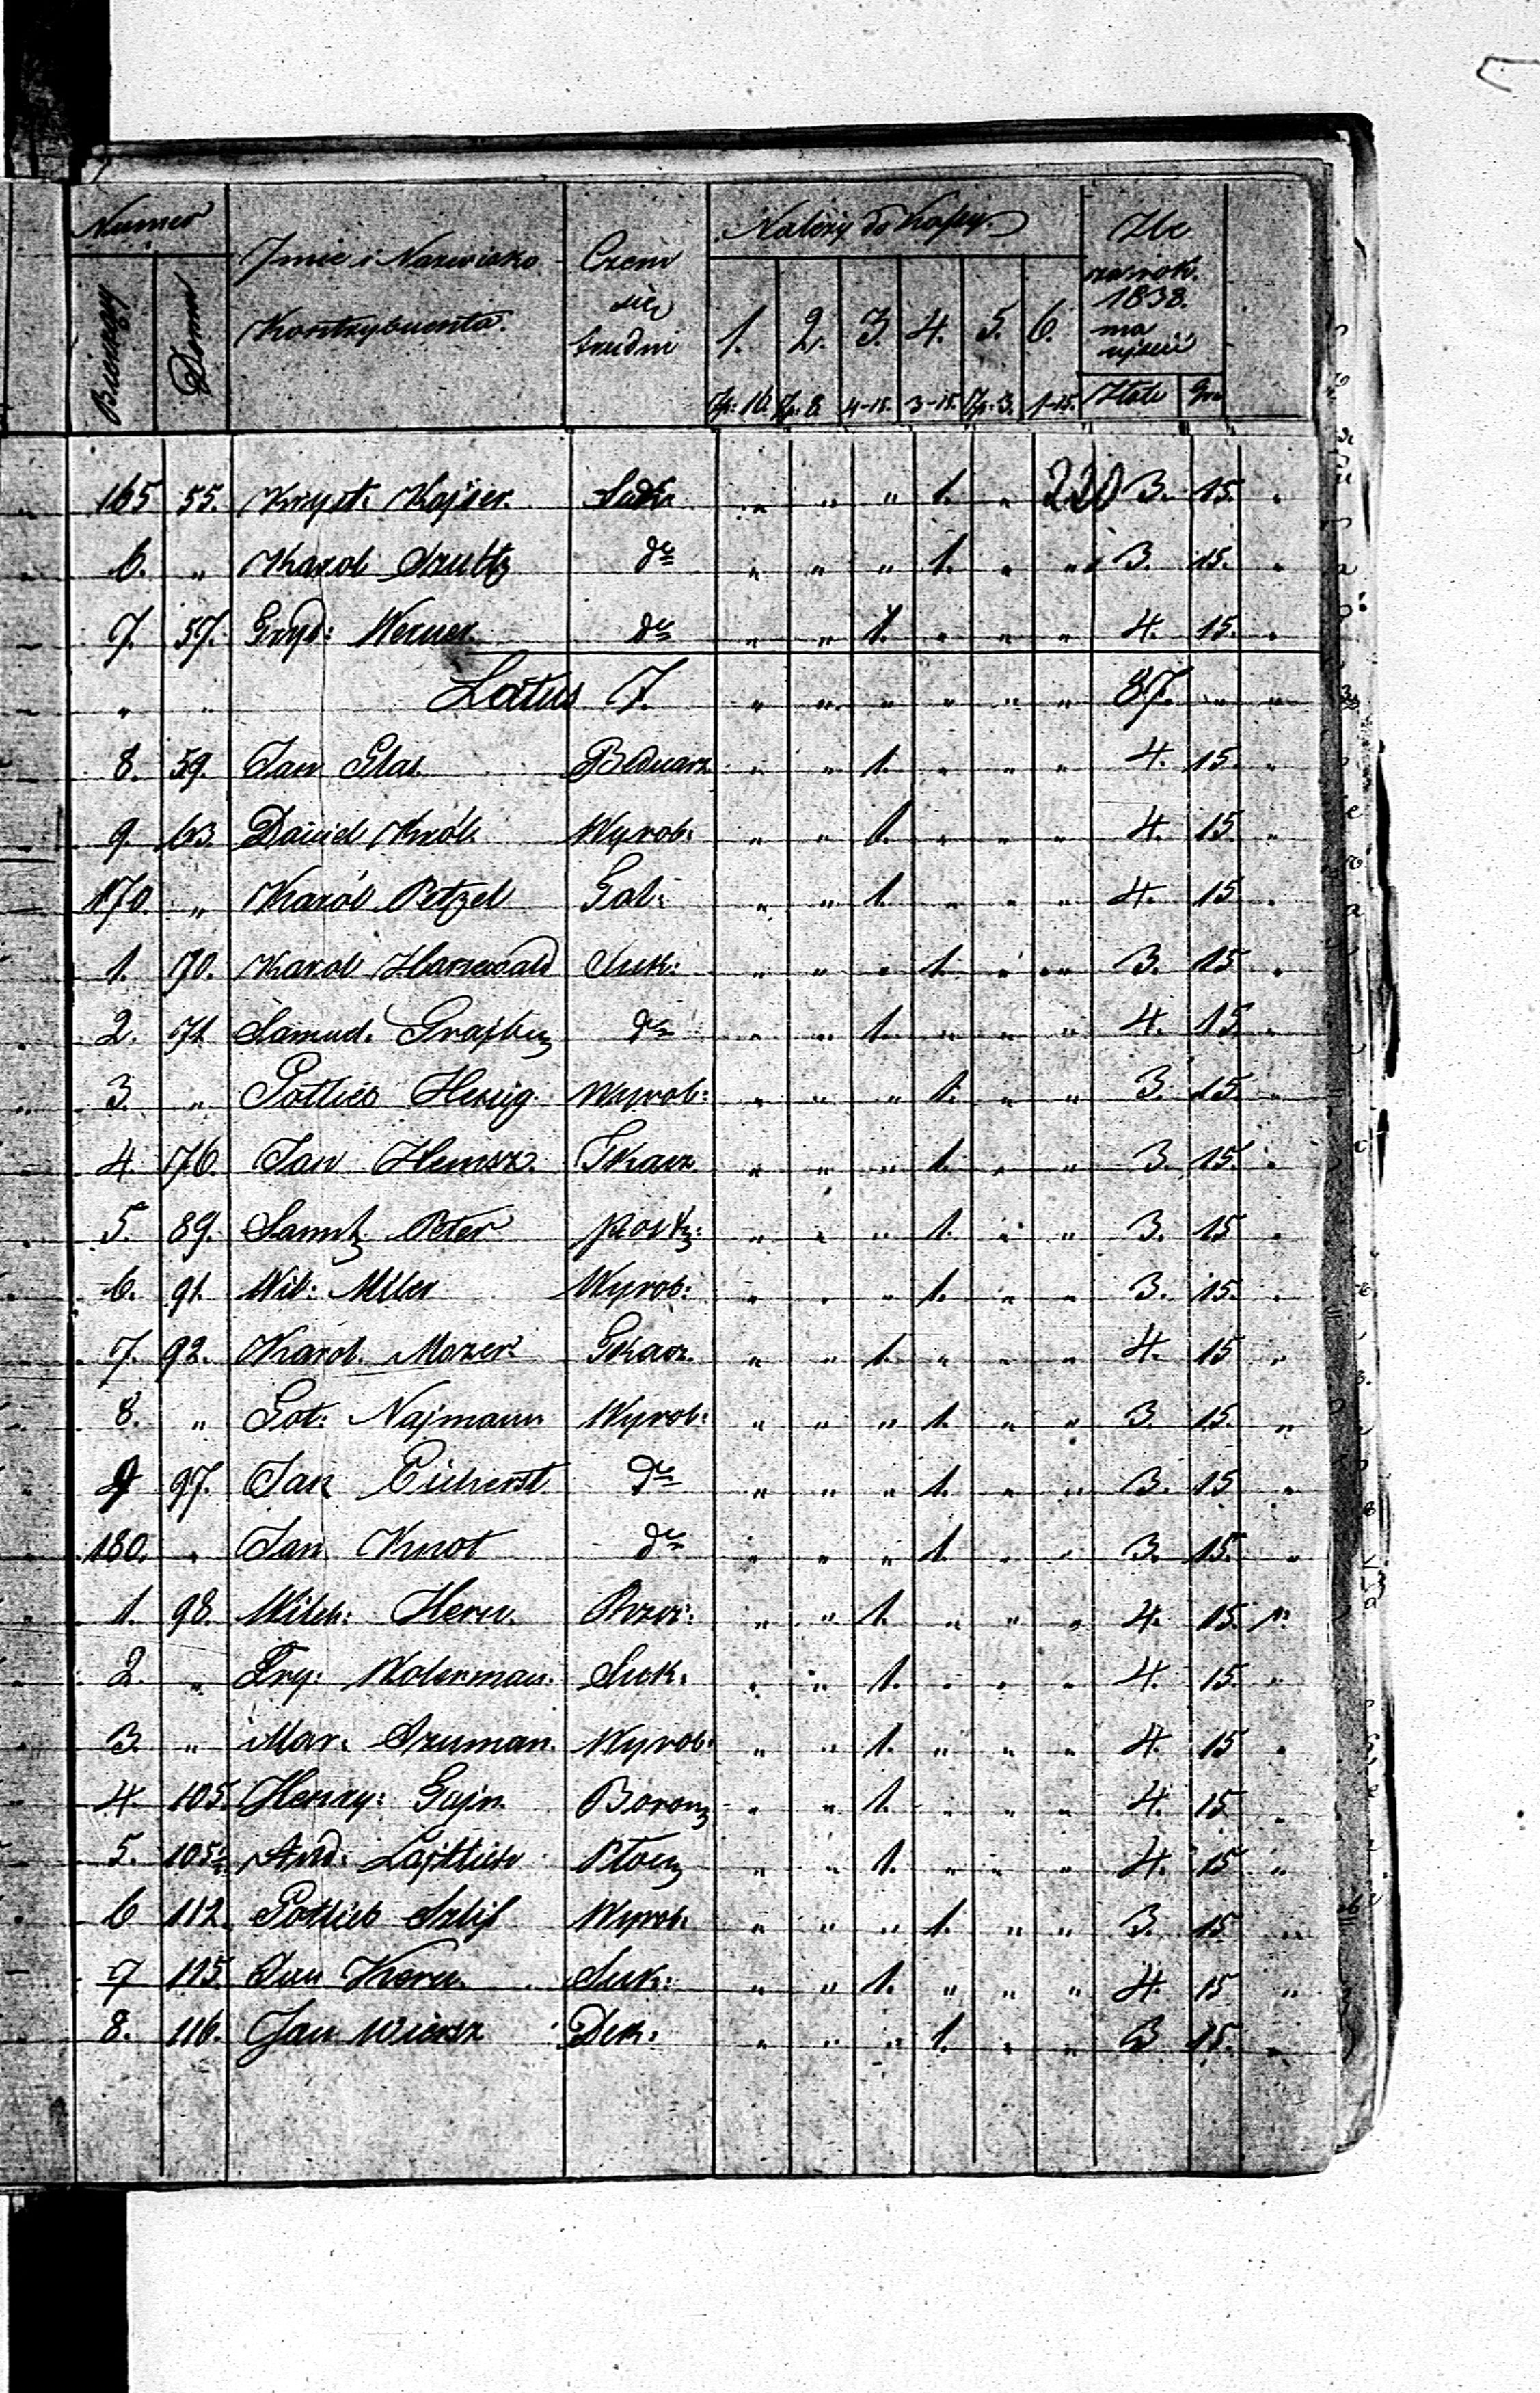 Numer
Bieżący Domu
Imie i Nazwisko Kontrybuenta.
Czem się trudni
Należy do Klassy
1. 2. 3. 4. 5. 6.
Złp: 16. Złp: 8. 4-15. 3-15. Złp: 3. 1-15.
Ile za rok. 1838. ma uiścić
Złote Gro
220
165 55. Kryst: Kajser. Suk: „ „ „ 1. „ 3. 15. „
6. „ Karol Szultz do „ „ „ 1. „ „ 3. 15. „
7. 57. Gryd: Werner do „ „ 1. „ „ „ 4. 15. „
„ „ Latus 7. „ „ „ „ „ „ 87. „ „
8. 59. Jan Glas Bednarz „ „ 1. „ „ „ 4. 15. „
9. 63. Daniel Król. Wyrob: „ „ 1. „ „ „ 4. 15 „
170. „ Karól Petzel Gal: „ „ 1. „ „ „ 4. 15 „
1. 70. Karol Harzwald Suk: „ „ „ 1. „ „ 3. 15 „
2. 71 Samuel. do „ „ 1. „ „ „ 4. 15 „
3. „ Gottlieb Hersig. Wyrob: „ „ „ 1. „ „ 3. 15. „
4. 76. Jan Tkacz „ „ „ 1. „ „ 3. 15. „
5. 89. Peter „ „ „ 1. „ „ 3. 15 „
6. 91. Wil: Miler Wyrob: „ „ „ 1. „ „ 3. 15. „
7. 92. Karol. Mazer Tkacz. „ „ 1. „ „ „ 4. 15 „
8. „ Got: Najmann Wyrob: „ „ „ 1. „ „ 3. 15. „
9 97. Jan Eichorst do „ „ „ 1. „ „ 3. 15 „
180. „ Jan Knot do „ „ „ 1. „ „ 3. 15. „
1. 98. Wilch: Hern. „ „ 1. „ „ „ 4. 15.
2. „ Fry: Wolerman. Suk: „ „ 1. „ „ „ 4. 15. „
3. „ Mar: Szuman. Wyrob: „ „ 1. „ „ „ 4. 15 „
4. 105. Henry: Gajn. „ „ 1. „ „ „ 4. 15 „
5. 105 And: „ „ 1. „ „ „ 4. 15 „
6 112. Gottlieb Szlif Wyrob: „ „ „ 1. „ „ 3. 15 „
7 115. Jan Kern. Suk: „ „ 1. „ „ „ 4. 15 „
8. 116. Jan Wiersz Dek: „ „ „ 1. „ „ 3 15. „